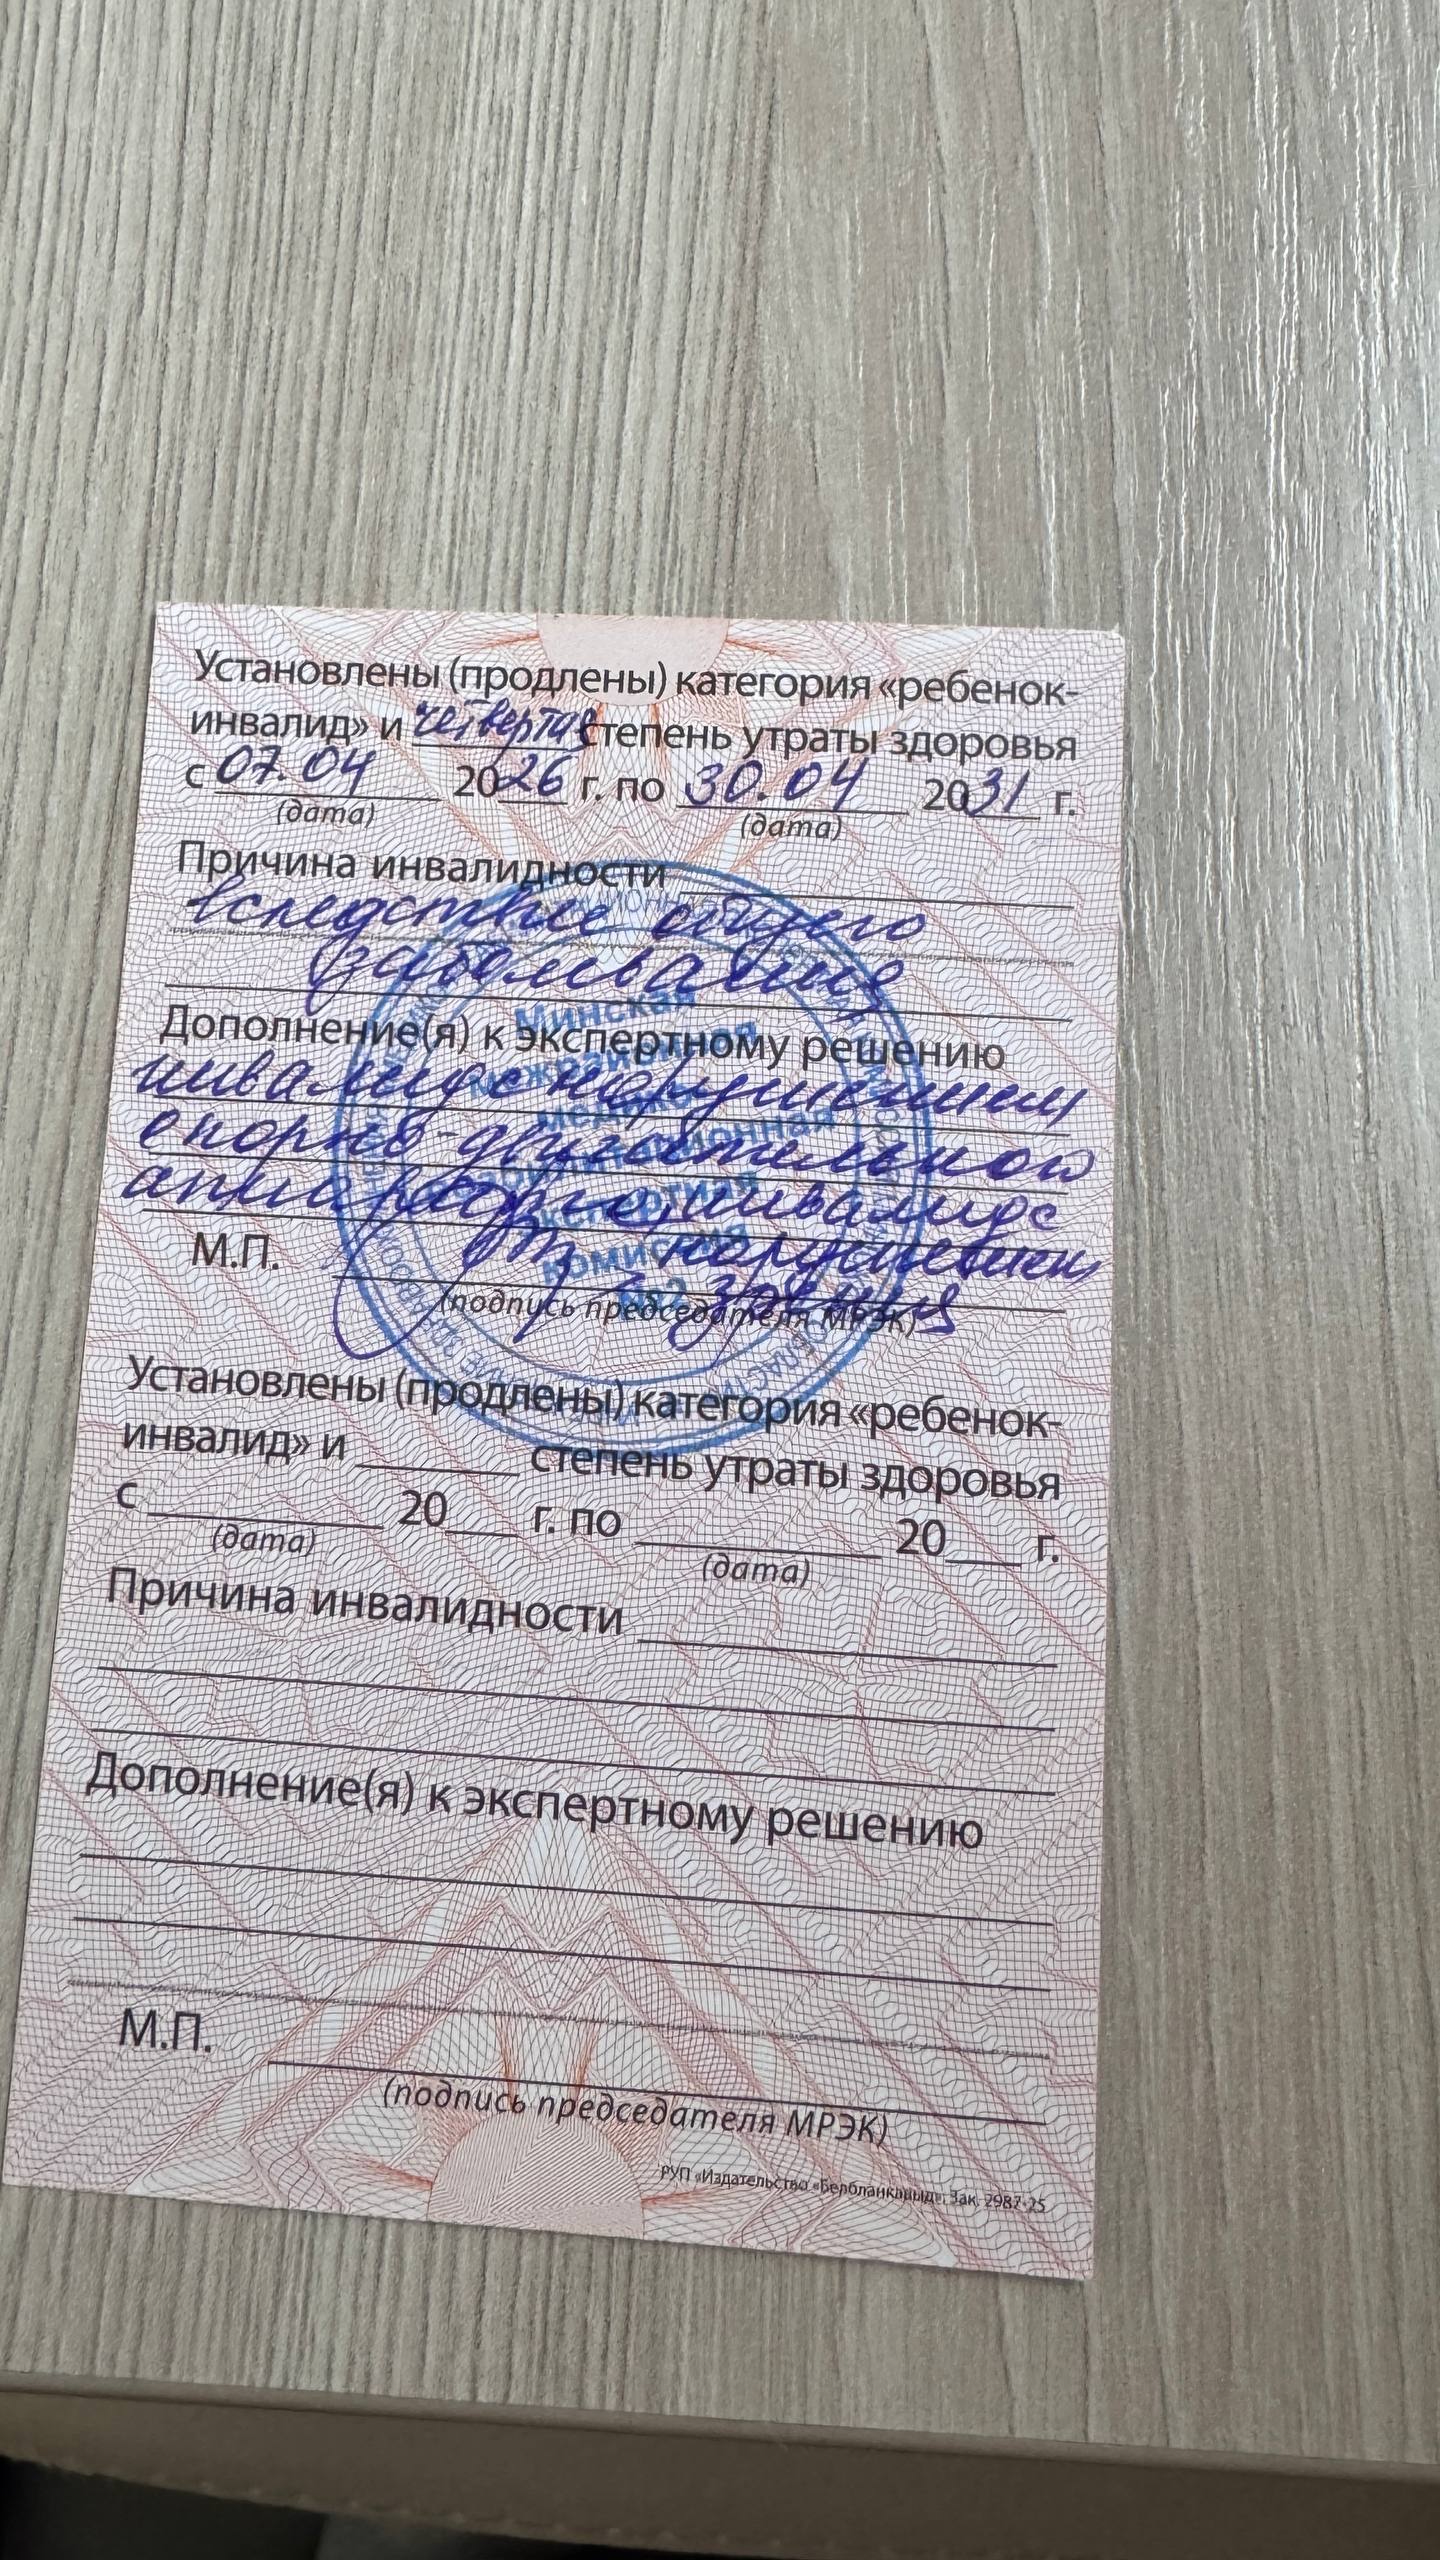 Установлены (продлены) категория «ребенок-
инвалид» и четвертая степень утраты здоровья
с 07.04 2026 г. по 30.04 2031 г.
(дата) (дата)
Причина инвалидности
вследствие общего
заболевания
Дополнение(я) к экспертному решению
инвалид с нарушением
опорно-двигательного
аппарата, инвалид с
нарушением
М.П.
зрения
(подпись председателя МРЭК)
Минская
межрайонная
медико-
реабилитационная
экспертная
комиссия
Установлены (продлены) категория «ребенок-
инвалид» и ______ степень утраты здоровья
с ______ 20___ г. по ______ 20___ г.
(дата) (дата)
Причина инвалидности
Дополнение(я) к экспертному решению
М.П.
(подпись председателя МРЭК)
РУП «Издательство «Белбланкавыд». Зак. 2987-25